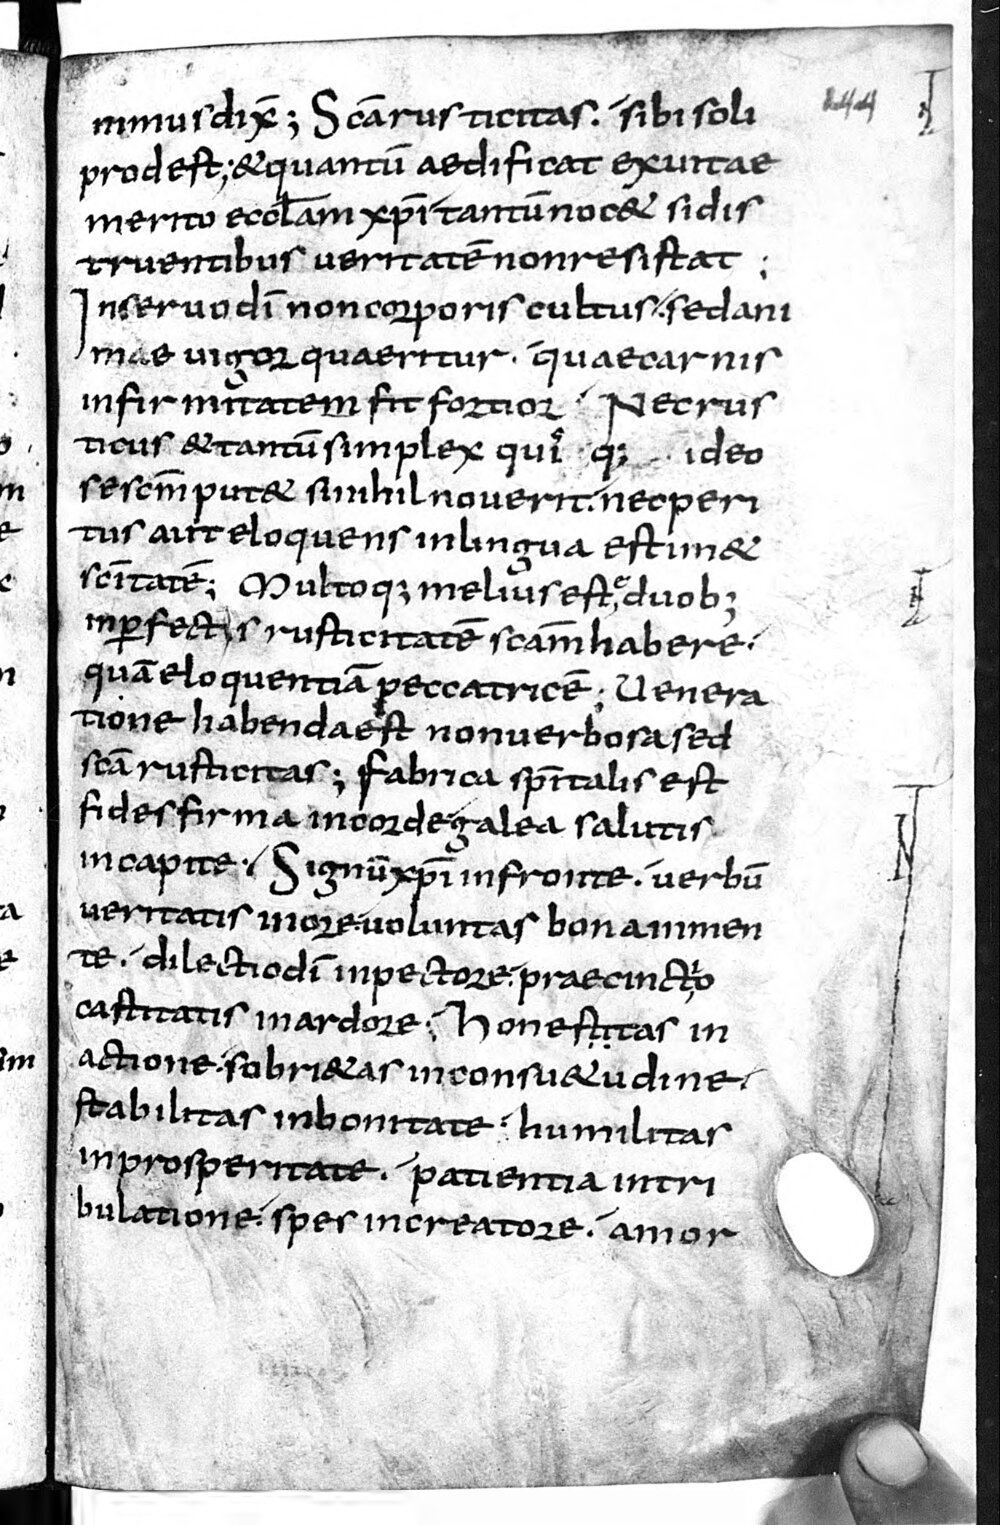 nimus dix̄; Scārusticitas. sibi soli
prodest; &quantū aedificat exuitae
merito eccl̄am xp̄i tantū noc& sidis
truentibus ueritatē nonresistat;
Inseruo dī noncorporis cultus. sedani
mae uigor quaeritur. quaecarnis
infirmitatem fit fortior. Necrus
ticus &tantū simplex qui q; ideo
sescm̄ put& sinihil nouerit. necperi
tus aut eloquens inlingua estim&
scītatē; Multoq; melius est, eduob;
inperfectis rusticitatē scām habere.
quā eloquentiā peccatricē; Uenera
tione habenda est nonuerbosa sed
scā rusticitas; fabrica sp̄italis est
fides firma incorde galea salutis
incapite. Signū xp̄i infronte. uerbū
ueritatis inore. uoluntas bona inmen
te. dilectio dī inpectore. praecincto
castitatis inardore. Honestitas in
actione. sobri&as inconsu&udine.
stabilitas inbonitate. humilitas
inprosperitate. patientia intri
bulatione. spes increatore. amor